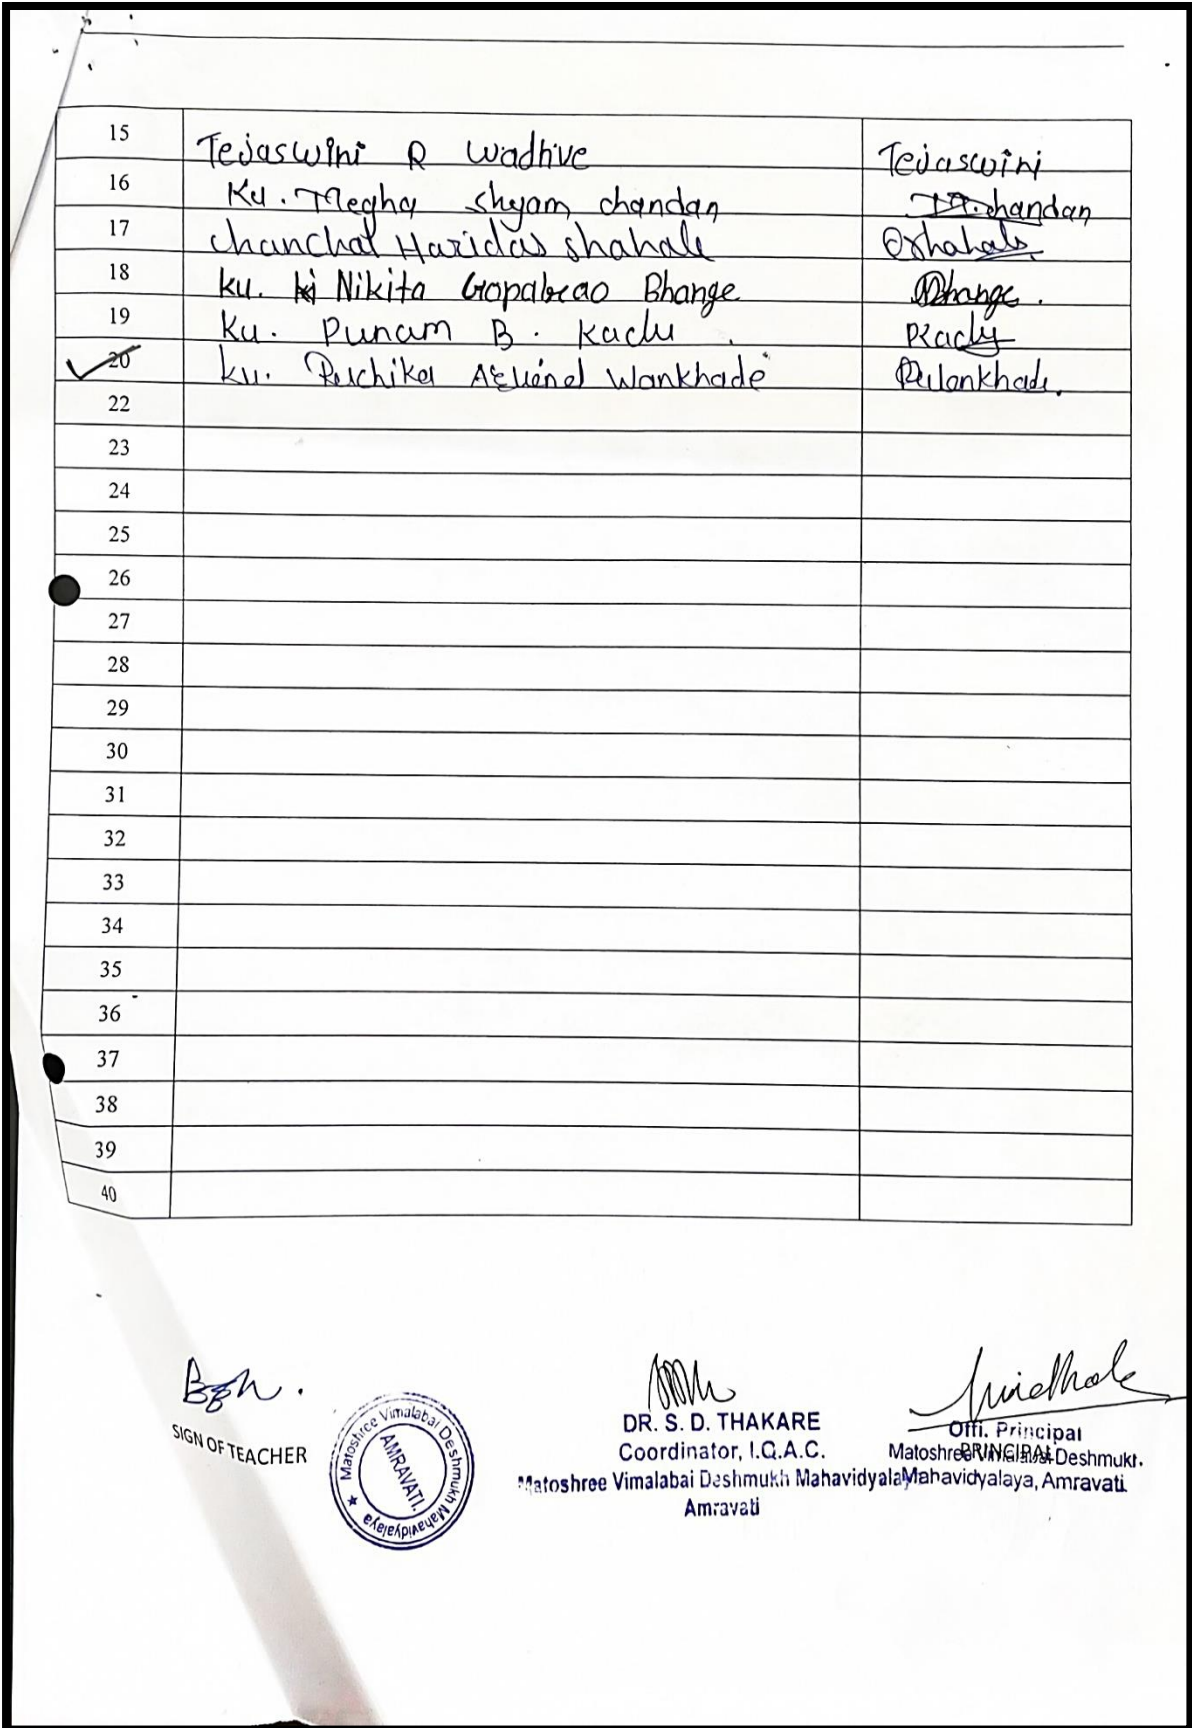 15 Tejaswini R Wadhive Tejaswini
16 Ku. Megha Shyam chandan chandan
17 Chanchal Haridas Shahale Shahale
18 ku. Nikita Gopalrao Bhange Bhange.
19 Ku. Punam B. Kadu. PKadu
20 ku. Ruchika Wankhade RWankhade.
22
23
24
25
26
27
28
29
30
31
32
33
34
35
36
37
38
39
40
SIGN OF TEACHER
Matoshree Vimalabai Deshmukh Mahavidyalaya ★
AMRAVATI.
DR. S. D. THAKARE
Coordinator, I.Q.A.C.
Matoshree Vimalabai Deshmukh Mahavidyala
Amravati
Offi. Principal
PRINCIPAL
Matoshree Deshmukh
Mahavidyalaya, Amravati.